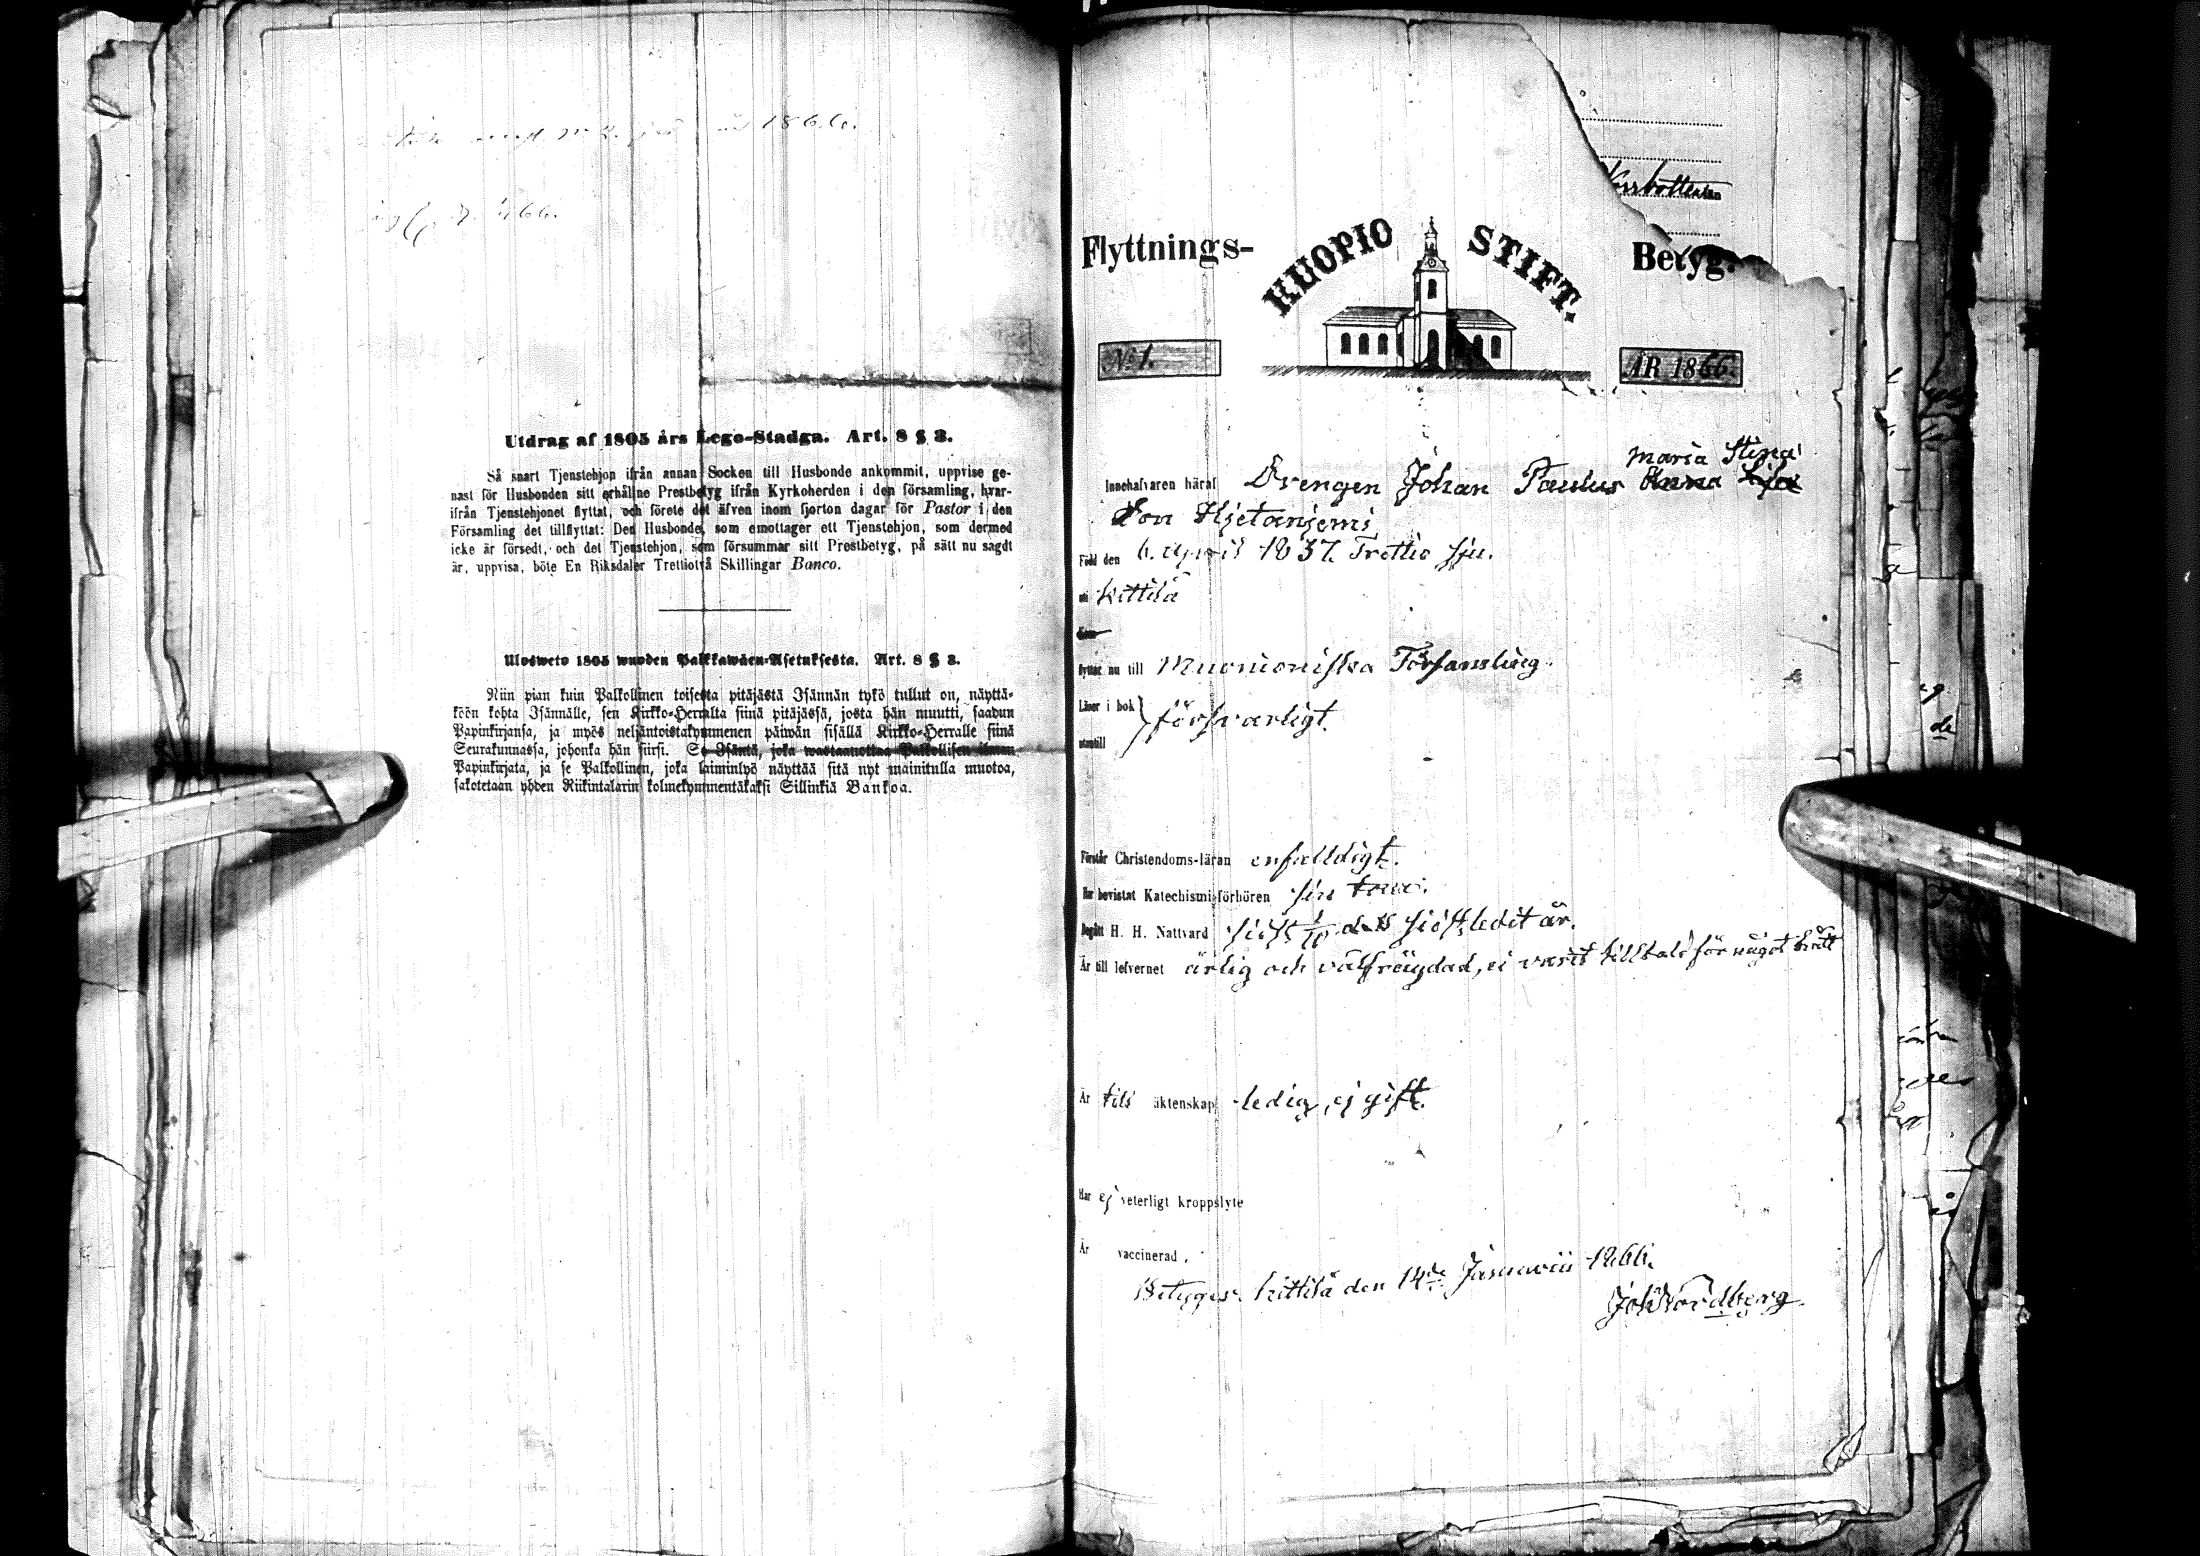 1866.
Utdrag af 1805 års Lego-Stadga. Art. 8 § 3.
Så snart Tjenstehjon ifrån annan Socken till Husbonde ankommit, uppvise ge-
nast för Husbonden sitt erhållne Prestbetyg ifrån Kyrkoherden i den församling, hvar-
ifrån Tjenstehjonet flyttat, och förete det äfven inom fjorton dagar för Pastor i den
Församling det tillflyttat: Den Husbonde, som emottager ett Tjenstehjon, som dermed
icke är försedt, och det Tjenstehjon, som försummar sitt Prestbetyg, på sätt nu sagdt
är, uppvisa, böte En Riksdaler Trettiotvå Skillingar Banco.
Ulosweto 1805 wuoden Palkkawäen-Asetuksesta. Art. 8 § 3.
Niin pian kuin Palkollinen toisesta pitäjästä Isännän tykö tullut on, näyttä-
köön kohta Isännälle, sen Kirkko-Herralta siinä pitäjässä, josta hän muutti, saadun
Papinkirjansa, ja myös neljäntoistakymmenen päiwän sisällä Kirkko-Herralle siinä
Seurakunnassa, johonka hän siirsi. Se Isäntä, joka wastaanottaa Palkollisen ilman
Papinkirjata, ja se Palkollinen, joka laiminlyö näyttää sitä nyt mainitulla muotoa,
sakotetaan yhden Riikintalarin kolmekymmentäkaksi Sillinkiä Bankoa.
Norrbotten
Flyttnings- KUOPIO STIFT. Betyg.
No 1. ÅR 1866.
Maria Stina
Innehafvaren häraf Drengen Johan Paulus Anna Lisa
Son Hietaniemi
Född den 6. April 1837. Trettio sju.
uti Kittilä
flyttar nu till Muonioniska Församling.
Läser i bok
utantill } försvarligt.
Förstår Christendoms-läran enfalldigt.
Har bevistat Katechismi-förhören sin tour.
Begått H. H. Nattvard sidst 1/10 det sidstledit år.
Är till lefvernet ärlig och välfrägdad, ei varit tilltald för något brått
Är till äktenskap ledig, ej gift.
Har ej veterligt kroppslyte
Är vaccinerad.
Betygar. Kittilä den 14de Januarii 1866.
Joh Nordberg.